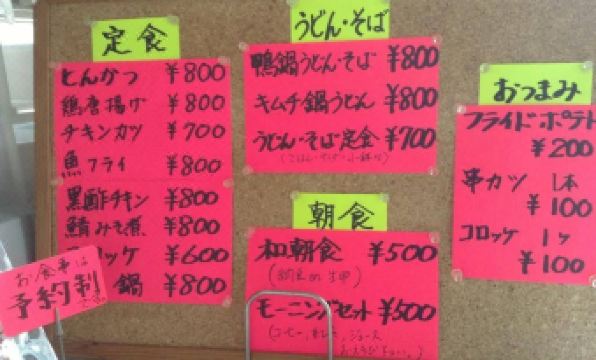 定食
とんかつ ¥800
鶏唐揚げ ¥800
チキンカツ ¥700
魚フライ ¥800
黒酢チキン ¥800
鯖みそ煮 ¥800
ロッケ ¥600
鍋 ¥800
お食事は
予約制
うどん・そば
鴨鍋うどん・そば ¥800
キムチ鍋うどん ¥800
うどん・そば定食 ¥700
朝食
和朝食 ¥500
モーニングセット ¥500
おつまみ
フライドポテト
¥200
串カツ 1本
¥100
コロッケ 1ヶ
¥100